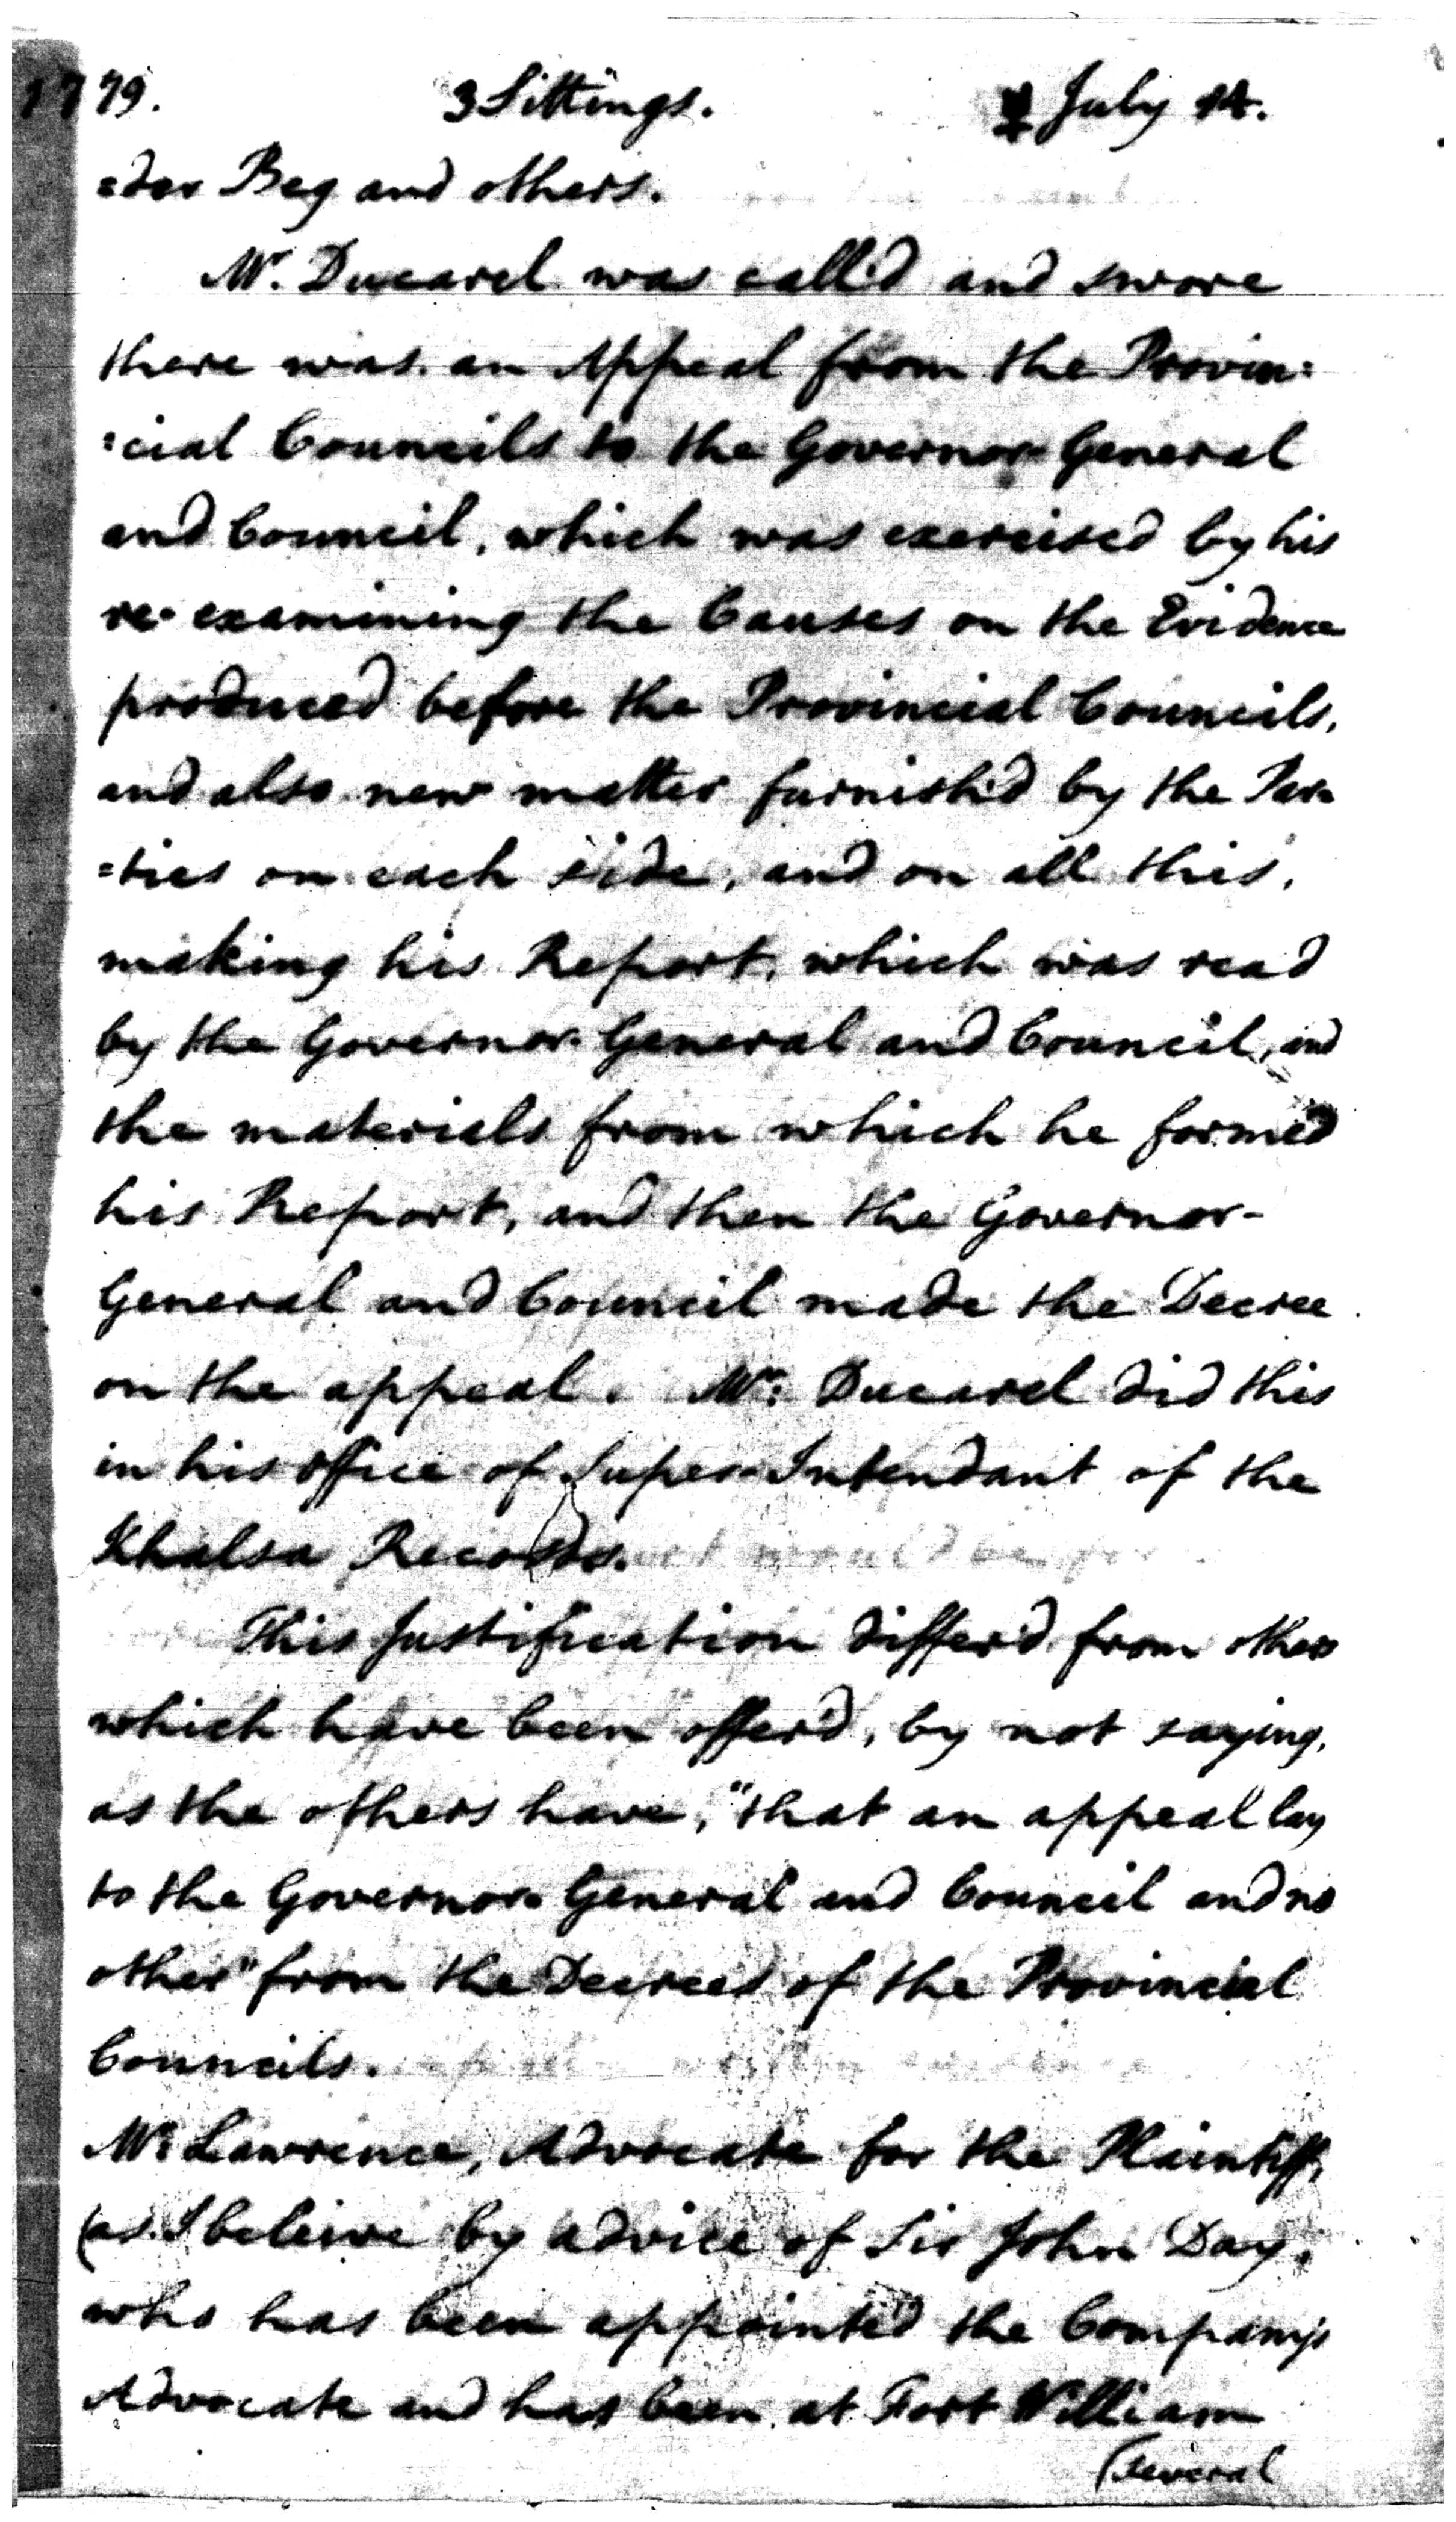 1779. 3 Sittings. ☿ July 14.
=der Beg and others.
Mr. Ducarel was call'd and swore
there was an Appeal from the Provin=
=cial Councils to the Governor-General
and Council, which was exercised by his
re-examining the Causes on the Evidence
produced before the Provincial Councils,
and also new matter furnish'd by the Par=
=ties on each side, and on all this,
making his Report, which was read
by the Governor-General and Council, and
the materials from which he form'd
his Report, and then the Governor-
General and Council made the Decree
on the appeal. Mr. Ducarel did this
in his office of Super-Intendant of the
Khalsa Records.
This Justification differ'd from others
which have been offer'd, by not saying,
as the others have, "that an appeal lay
to the Governor-General and Council and no
other" from the Decrees of the Provincial
Councils.
Mr. Lawrence, Advocate for the Plaintiff,
(as I beleive by advice of Sir John Day,
who has been appointed the Company's
Advocate and has been at Fort William
(several